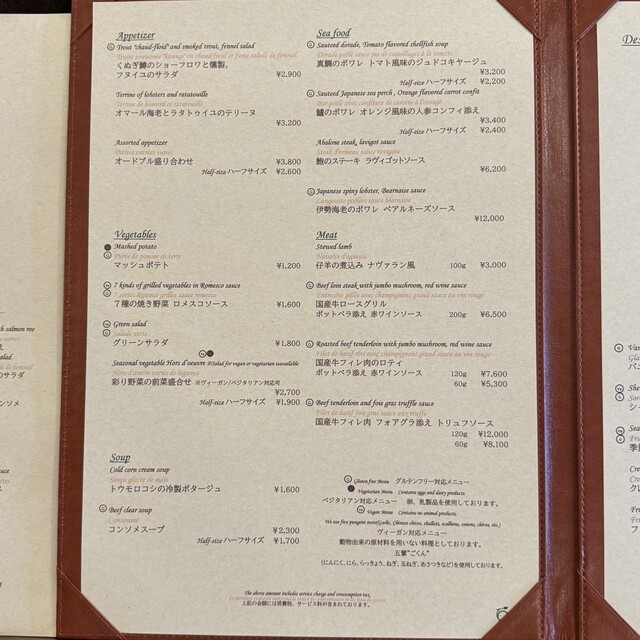 Appetizer
Trout "chaud-froid" and smoked trout, fennel salad
くぬぎ鱒のショーフロワと燻製、
フヌイユのサラダ ¥2,900
Terrine of lobsters and ratatouille
Terrine de homard et ratatouille
オマール海老とラタトゥイユのテリーヌ
¥3,200
Assorted appetizer
Petites entrées variés
オードブル盛り合わせ ¥3,800
Half-size ハーフサイズ ¥2,600
Vegetables
Mashed potato
Purée de pomme de terre
マッシュポテト ¥1,200
7 kinds of grilled vegetables in Romesco sauce
7 sortes légumes grillés sauce romesco
7種の焼き野菜 ロメスコソース ¥1,600
Green salad
Salade verte
グリーンサラダ ¥1,800
Seasonal vegetable Hors d'oeuvre ※Salad for vegan or vegetarian available
Hors-d'œuvre variés de légumes
彩り野菜の前菜盛合せ ※ヴィーガン/ベジタリアン対応可
¥2,700
Half-size ハーフサイズ ¥1,900
Soup
Cold corn cream soup
Soupe glacée de maïs
トウモロコシの冷製ポタージュ ¥1,600
Beef clear soup
Consommé
コンソメスープ ¥2,300
Half-size ハーフサイズ ¥1,700
Sea food
Sauteed dorade, Tomato flavored shellfish soup
Dorade poêlé au jus de coquillages à la tomate
真鯛のポワレ トマト風味のジュドコキヤージュ
¥3,200
Half-size ハーフサイズ ¥2,200
Sauteed Japanese sea perch , Orange flavored carrot confit
Bar poêlé avec confiture de carotte à l'orange
鱸のポワレ オレンジ風味の人参コンフィ添え
¥3,400
Half-size ハーフサイズ ¥2,400
Abalone steak, lavigot sauce
Steak d'ormeau sauce ravigote
鮑のステーキ ラヴィゴットソース
¥6,200
Japanese spiny lobster, Bearnaise sauce
Langouste poêlées sauce béarnaise
伊勢海老のポワレ ベアルネーズソース
¥12,000
Meat
Stewed lamb
Navarin d'agneau
仔羊の煮込み ナヴァラン風 100g ¥3,000
Beef loin steak with jumbo mushroom, red wine sauce
Entrecôte grillé avec champignons grand sauce au vin rouge
国産牛ロースグリル
ポットベラ添え 赤ワインソース 200g ¥6,500
Roasted beef tenderloin with jumbo mushroom, red wine sauce
Filet de bœuf rôti avec champignons grand sauce au vin rouge
国産牛フィレ肉のロティ
ポットベラ添え 赤ワインソース 120g ¥7,600
60g ¥5,300
Beef tenderloin and foie gras truffle sauce
Filet de bœuf foie gras sauce aux truffe
国産牛フィレ肉 フォアグラ添え トリュフソース
120g ¥12,000
60g ¥8,100
Gluten free Menu グルテンフリー対応メニュー
Vegetarian Menu Contains eggs and dairy products.
ベジタリアン対応メニュー 卵、乳製品を使用しております。
Vegan Menu Contains no animal products.
We use five pungent roots(Garlic, Chinese chives, shallots, scallions, onions, chives, etc.)
ヴィーガン対応メニュー
動物由来の原材料を用いない料理としております。
五葷"ごくん"
(にんにく、にら、らっきょう、ねぎ、玉ねぎ、あさつきなど)を使用しております。
The above amount includes service charge and consumption tax.
上記の金額には消費税、サービス料が含まれております。